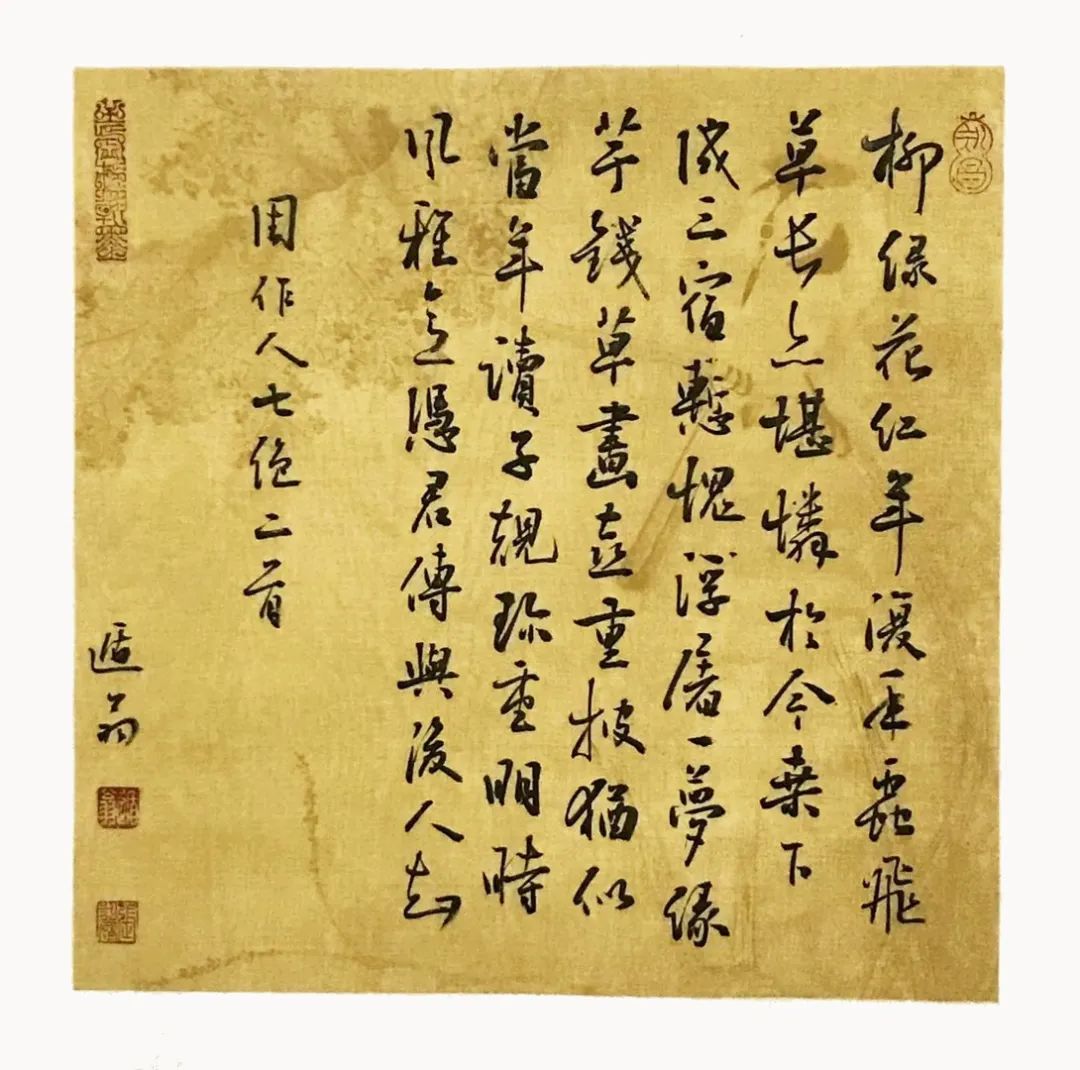 柳緑花紅年復年蟲飛
草長亦堪憐於今桑下
成三宿慙愧浮屠一夢緣
芋錢草畫意重披猶似
當年讀子覬珍重明時
風雅意憑君傳與後人知
周作人七絶二首
遁翁